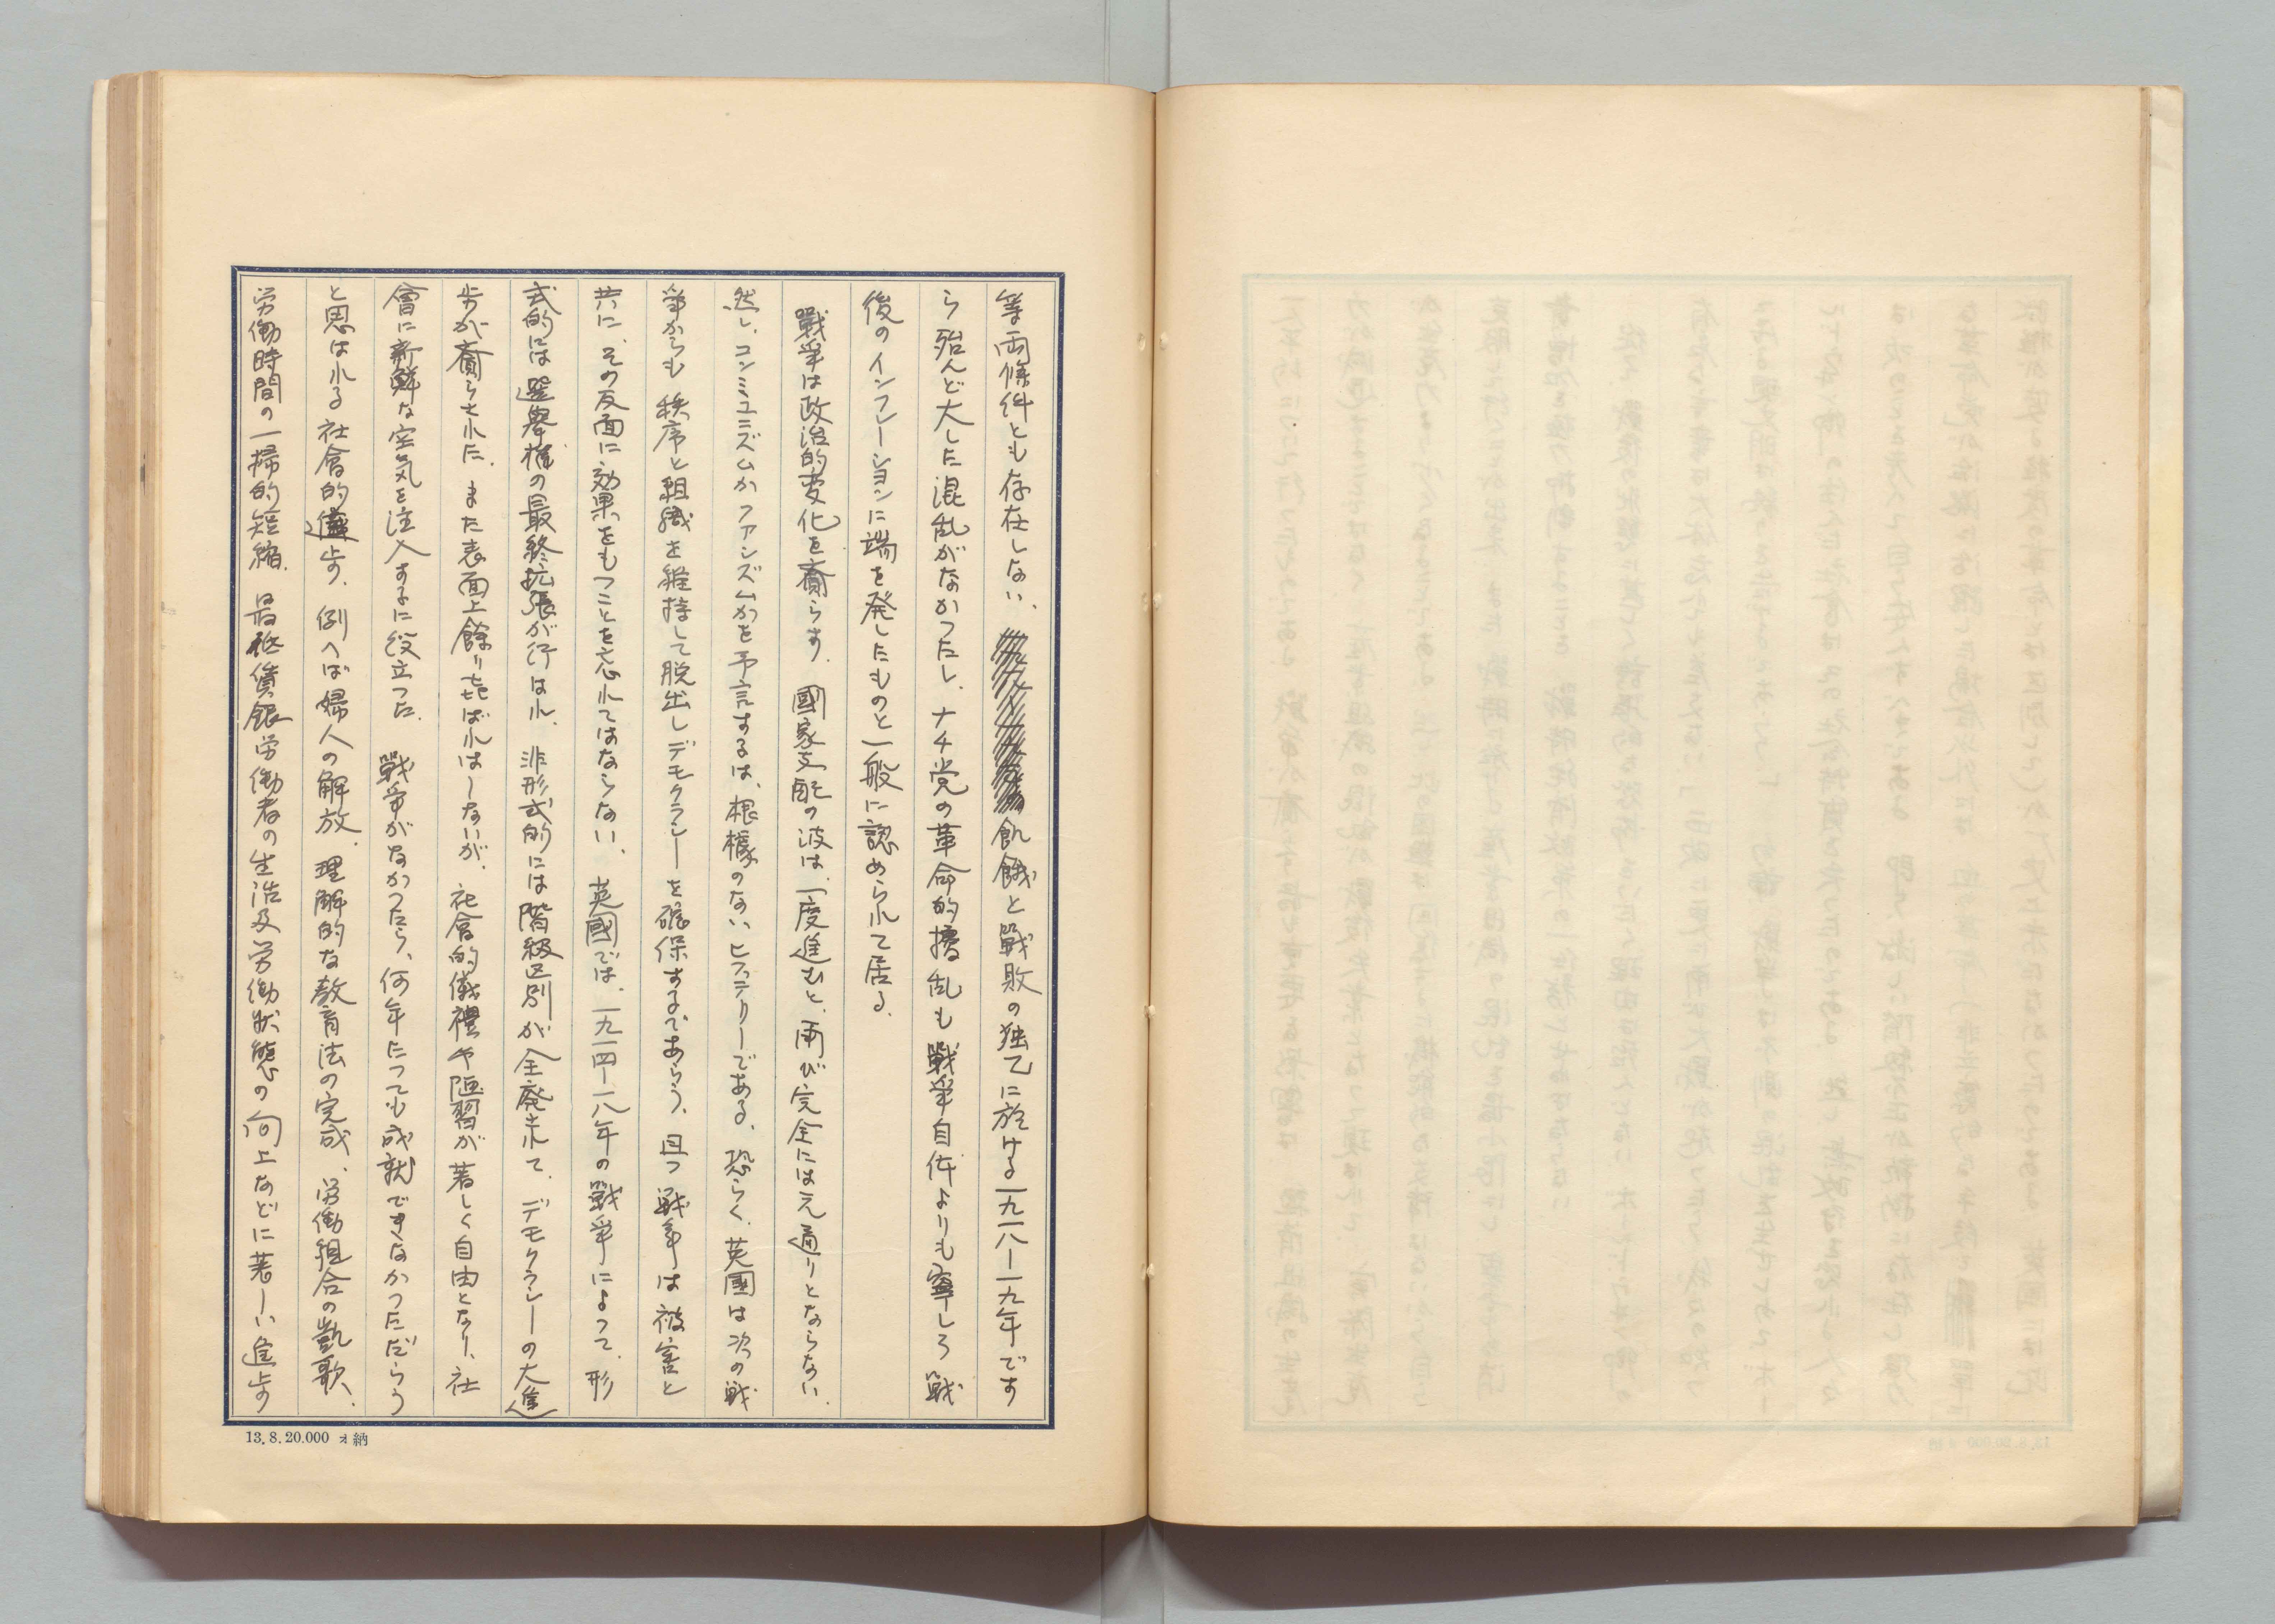 等両條件とも存在しない、飢餓と戰敗の独乙に於ける一九一八―一九年です
ら殆んど大した混乱がなかつたし、ナチ党の革命的擾乱も戰爭自体よりも寧しろ戰
後のインフレーションに端を発したものと一般に認められて居る。
戰爭は政治的変化を齎らす。國家支配の波は、一度進むと、再び完全にはえ通りとならない。
然し、コンミュニズムかファシズムかを予言するは、根據のないヒステリーである、恐らく、英國は次の戦
爭からも秩序と組織を維持して脱出しデモクラシーを確保するであらう、且つ戦爭は被害と
共に、その反面に効果をもつことを忘れてはならない、英國では、一九一四―一八年の戰爭によつて、形
式的には選擧権の最終拡張が行はれ、非形式的には階級区別が全廃されて、デモクラシーの大進
歩が齎らされた、また表面上餘り喜ばれはしないが、社會的儀禮や陋習が著しく自由となり、社
會に新鮮な空気を注入するに役立つた、戰爭がなかつたら、何年たつても成就できなかつただらう
と思はれる社會的進歩、例へば婦人の解放、理解的な教育法の完成、労働組合の凱歌、
労働時間の一掃的短縮、最低賃銀労働者の生活及労働状態の向上などに著しい進歩
13.8.20.000 オ納